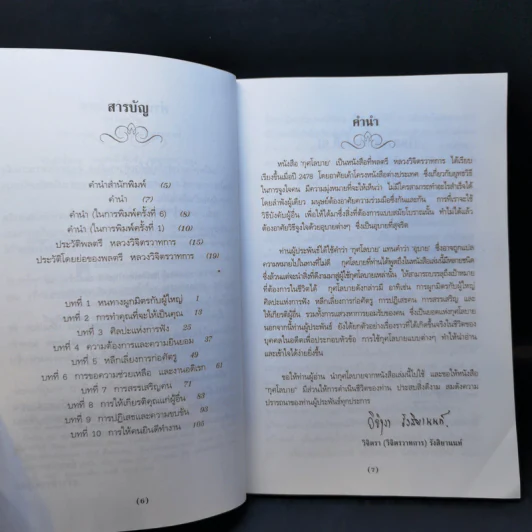 สารบัญ
คำนำสำนักพิมพ์ (5)
คำนำ (7)
คำนำ (ในการพิมพ์ครั้งที่ 6) (8)
คำนำ (ในการพิมพ์ครั้งที่ 1) (10)
ประวัติพลตรี หลวงวิจิตรวาทการ (15)
ประวัติโดยย่อของพลตรี หลวงวิจิตรวาทการ (19)
บทที่ 1 หนทางผูกมิตรกับผู้ใหญ่ 1
บทที่ 2 การทำคุณที่จะให้เป็นคุณ 13
บทที่ 3 ศิลปะแห่งการฟัง 25
บทที่ 4 ความต้องการและความยินยอม 37
บทที่ 5 หลีกเลี่ยงการก่อศัตรู 49
บทที่ 6 การขอความช่วยเหลือ และงานอดิเรก 61
บทที่ 7 การสรรเสริญคน 71
บทที่ 8 การให้เกียรติคุณแก่ผู้อื่น 83
บทที่ 9 การปฏิเสธและความขบขัน 95
บทที่ 10 การให้คนยินดีทำงาน 105
(6)
คำนำ
หนังสือ "กุศโลบาย" เป็นหนังสือที่พลตรี หลวงวิจิตรวาทการ ได้เรียบ
เรียงขึ้นเมื่อปี 2479 โดยอาศัยเค้าโครงหนังสือต่างประเทศ ซึ่งเกี่ยวกับยุทธวิธี
ในการจูงใจคน มีความมุ่งหมายที่จะให้เห็นว่า ไม่มีใครสามารถทำอะไรสำเร็จได้
โดยลำพังผู้เดียว มนุษย์ต้องอาศัยความร่วมมือซึ่งกันและกัน การที่เราจะใช้
วิธีบังคับผู้อื่น เพื่อให้ได้มาซึ่งสิ่งที่ต้องการแบบสมัยโบราณนั้น ทำไม่ได้แล้ว
ต้องอาศัยวิธีจูงใจด้วยอุบายต่างๆ ซึ่งเป็นอุบายที่สุจริต
ท่านผู้ประพันธ์ได้ใช้คำว่า "กุศโลบาย" แทนคำว่า "อุบาย" ซึ่งอาจถูกแปล
ความหมายไปในทางที่ไม่ดี กุศโลบายที่ท่านได้พูดถึงในหนังสือเล่มนี้มีหลายชนิด
ซึ่งล้วนแต่จะนำสิ่งที่ดีงามมาสู่ผู้ใช้กุศโลบายเหล่านั้น ให้สามารถบรรลุถึงเป้าหมาย
ที่ต้องการในชีวิตได้ กุศโลบายดังกล่าวมี อาทิเช่น การผูกมิตรกับผู้ใหญ่
ศิลปะแห่งการฟัง หลีกเลี่ยงการก่อศัตรู การปฏิเสธคน การสรรเสริญ และ
ให้เกียรติผู้อื่น รวมทั้งการแสวงหาการยอมรับของคน ซึ่งเป็นยอดแห่งกุศโลบาย
นอกจากนี้ท่านผู้ประพันธ์ ยังได้ยกตัวอย่างเรื่องราวที่ได้เกิดขึ้นจริงในชีวิตของ
บุคคลในอดีตเพื่อประกอบหัวข้อ การใช้กุศโลบายแบบต่างๆ ทำให้น่าอ่าน
และเข้าใจได้ง่ายยิ่งขึ้น
ขอให้ท่านผู้อ่าน นำกุศโลบายจากหนังสือเล่มนี้ไปใช้ และขอให้หนังสือ
"กุศโลบาย" มีส่วนให้การดำเนินชีวิตของท่าน ประสบสิ่งดีงาม สมดังความ
ปรารถนาของท่านผู้ประพันธ์ทุกประการ
วิจิตรา รังสิยานนท์
วิจิตรา (วิจิตรวาทการ) รังสิยานนท์
(7)